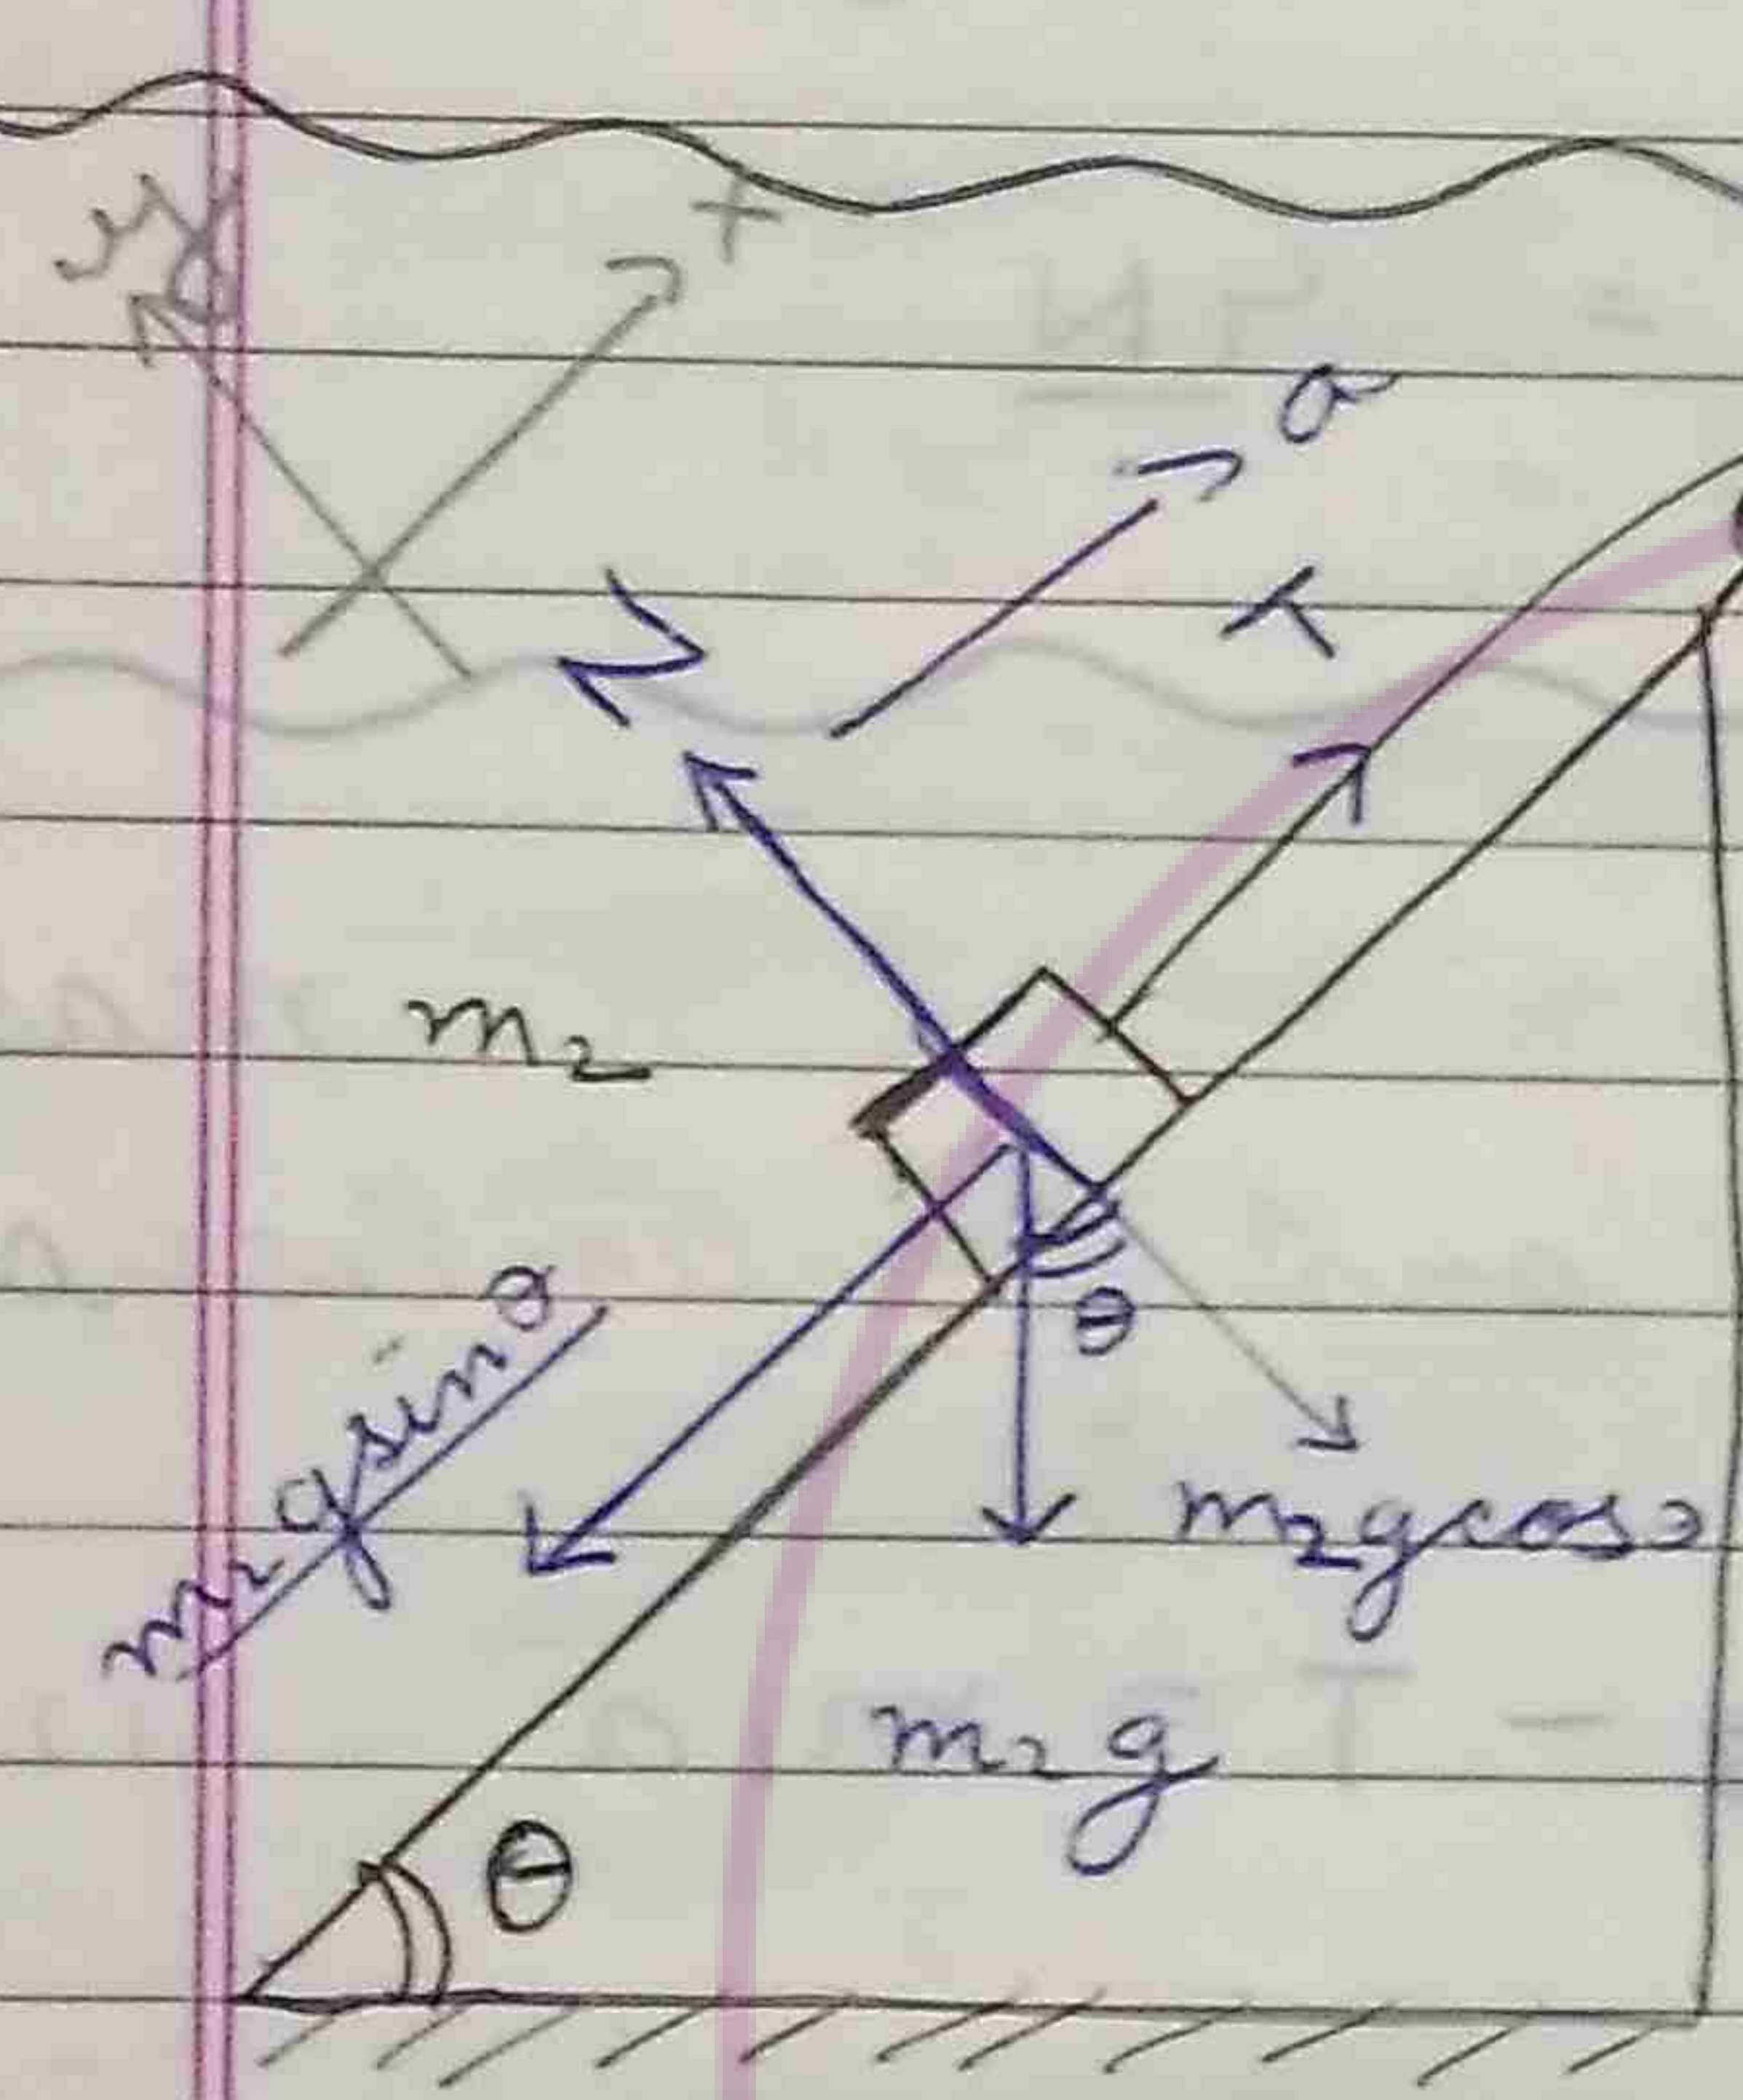 +
a
T
N
m₂
θ
m₂g sinθ
m₂g cos
m₂g
θ